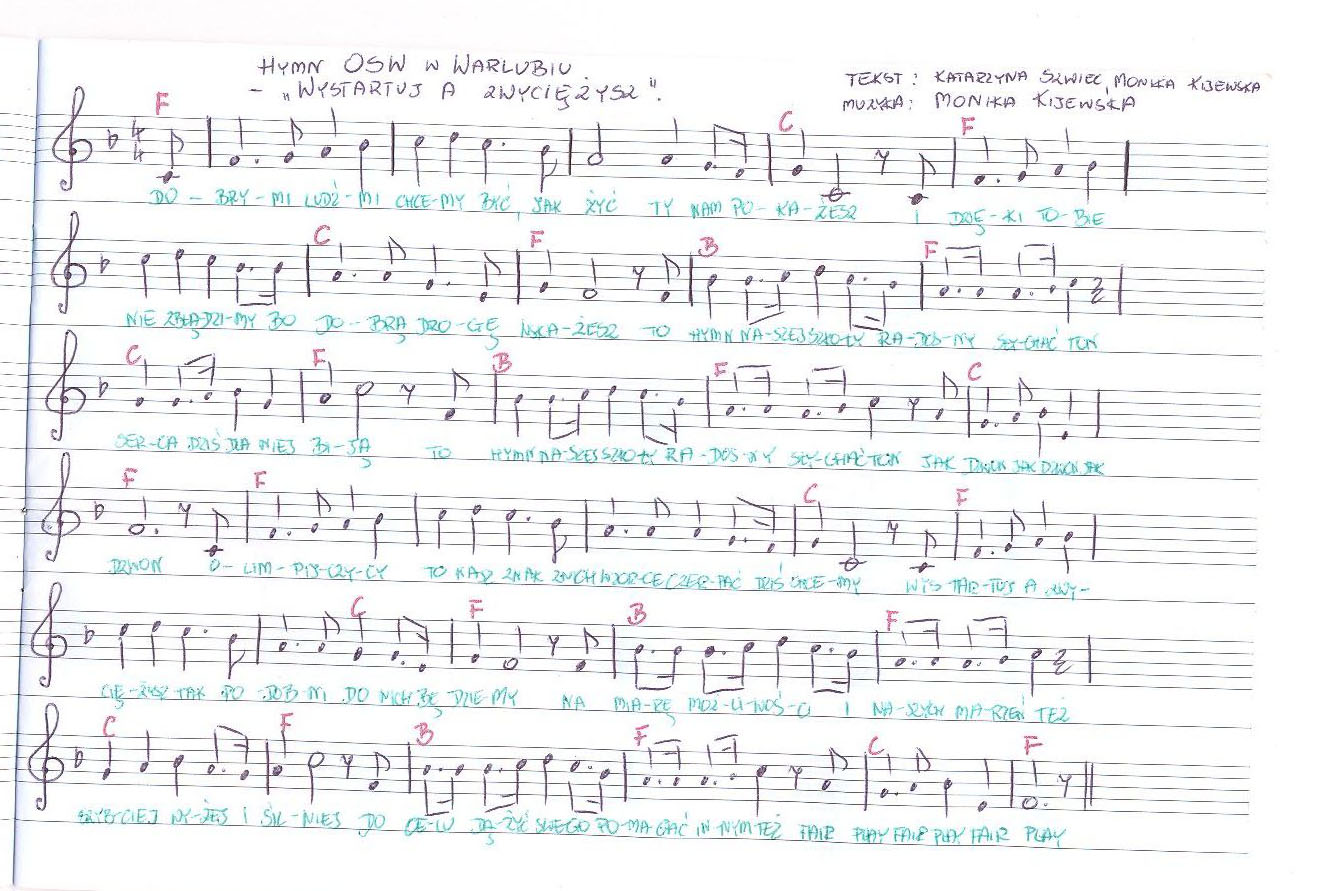 HYMN OSW W WARLUBIU
- „WYSTARTUJ A ZWYCIĘŻYSZ".
TEKST: KATARZYNA SZWIEC, MONIKA KIJEWSKA
MUZYKA: MONIKA KIJEWSKA
F C F
4
4
DO - BRY - MI LUDŹ - MI CHCE - MY BYĆ, JAK ŻYĆ TY NAM PO - KA - ŻESZ I DZIĘ - KI TO - BIE
C F B F
NIE ZBŁĄDZI - MY BO DO - BRĄ DRO - GĘ WSKA - ŻESZ TO HYMN NA - SZEJ SZKO - ŁY RA - DOS - NY SŁY - CHAĆ TON
C F B F C
SER - CA DZIŚ DLA NIEJ BI - JĄ TO HYMN NA - SZEJ SZKO - ŁY RA - DOS - NY SŁY - CHAĆ TON JAK DZWON JAK DZWON JAK
F F C F
DZWON O - LIM - PIJ - CZY - CY TO ZNAK CZER - PAĆ DZIŚ CHCE - MY WYS - TAR - TUJ A ZWY -
C F B F
CIĘ - ŻYSZ TAK PO - DOB - NI DO NICH BĘ DZIE - MY NA MIA - RĘ MOŻ - LI - WOŚ - CI I NA - SZYCH MA - RZEŃ TEŻ
C F B F C F
SZYB - CIEJ WY - ŻEJ I SIL - NIEJ DO CE - LU DĄ - ŻYĆ SWEGO PO - MA GAĆ IN - NYM TEŻ FAIR PLAY FAIR PLAY FAIR PLAY